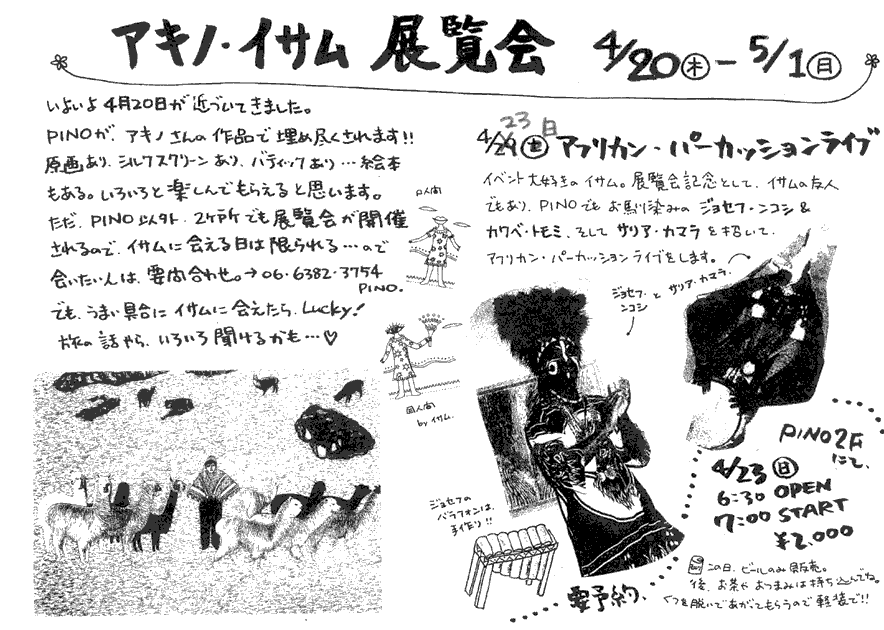 アキノ・イサム 展覧会 4/20㊍ー5/1㊐
いよいよ4月20日が近づいてきました。
PINOが、アキノさんの作品で埋め尽くされます!!
原画あり、シルクスクリーンあり、バティックあり…絵本
もある。いろいろと楽しんでもらえると思います。
ただ、PINO以外、2ヶ所でも展覧会が開催
されるので、イサムに会える日は限られる…ので
会いたい人は、要問合わせ。→06・6382・3754
PINO.
でも、うまい具合にイサムに会えたら、Lucky!
旅の話やら、いろいろ聞けるかも…♡
23日
4/29㊏ アフリカン・パーカッションライブ
イベント大好きのイサム。展覧会記念として、イサムの友人
でもあり、PINOでもお馴染みのジョセフ・ンコシ&
カワベ・トモミ、そしてサリア・カマラを招いて、
アフリカン・パーカッションライブをします。
ジョセフ・
ンコシ
と サリア・カマラ.
by イサム.
ジョセフの
バラフォンは、
手作り!!
PINO2F
にて、
4/23㊐
6:30 OPEN
7:00 START
¥2.000
この日、ビールのみ販売。
後、お茶やおつまみは持ち込んでね。
くつを脱いであがってもらうので軽装で!!
要予約、